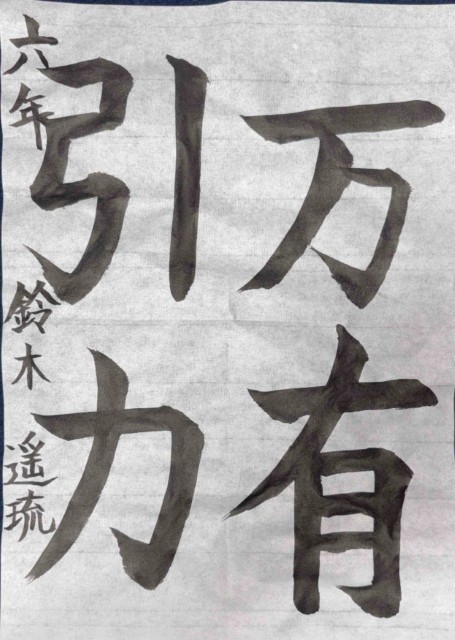 万有
引力
六年 鈴木 遥琉